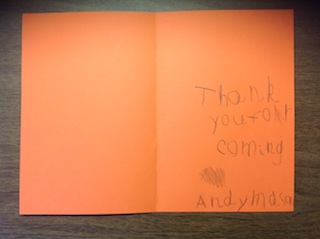 Thank
you for
coming
Andy Mason